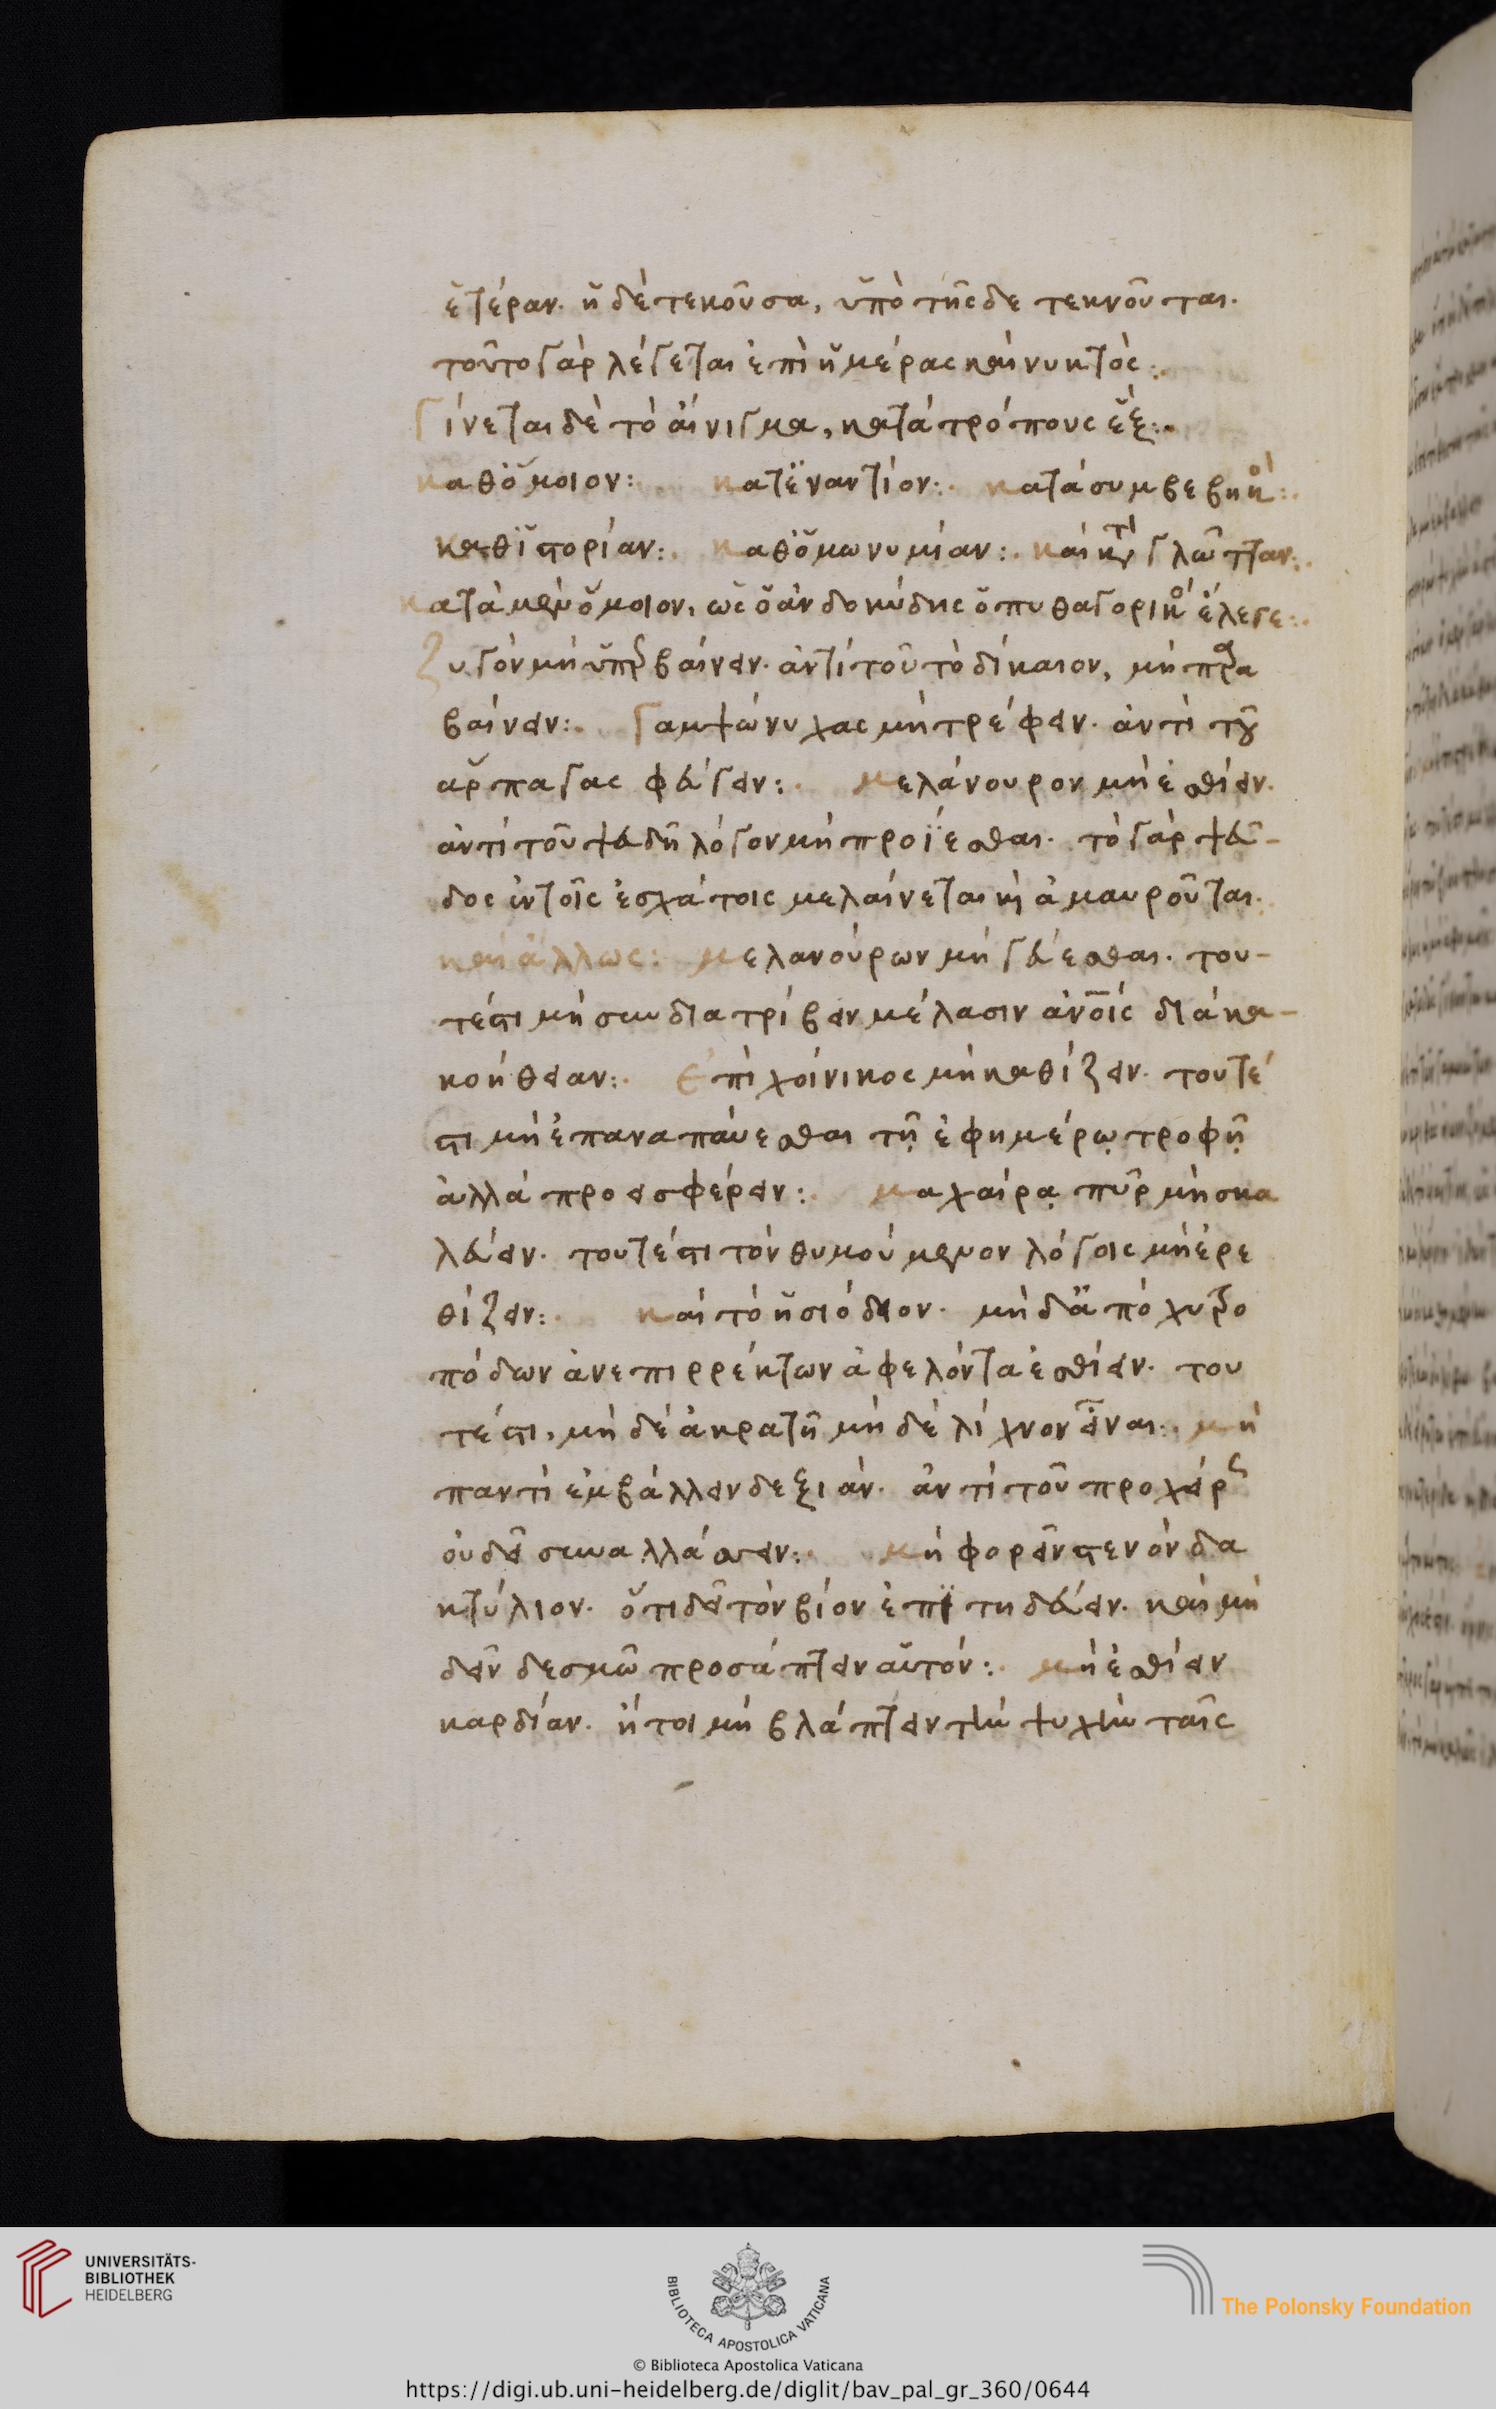 ἑτέραν. ἡ δὲ τεκοῦσα, ὑπὸ τῆσδε τεκνοῦται.
τοῦτο γὰρ λέγεται ἐπὶ ἡμέρας καὶ νυκτός:.
Γίνεται δὲ τὸ αἴνιγμα, κατὰ τρόπους ἕξ:.
καθ ὅμοιον: κατ ἐναντίον:. κατὰ συμβεβηκ:.
καθ ἱστορίαν:. καθ ὁμωνυμίαν:. καὶ κτ γλῶτταν:.
κατὰ μὲν ὅμοιον, ὡς ὁ ἀνδοκύδης ὁ πυθαγορικ ἔλεγε:.
Ζυγὸν μὴ ὑπρβαίνειν. ἀντὶ τοῦ τὸ δίκαιον, μὴ πρα
βαίνειν:. Γαμψώνυχας μὴ τρέφειν. ἀντὶ τοῦ
ἅρπαγας φεύγειν:. μελάνουρον μὴ ἐσθίειν.
ἀντὶ τοῦ ψευδῆ λόγον μὴ προΐεσθαι. τὸ γὰρ ψεῦ-
δος ἐν τοῖς ἐσχάτοις μελαίνεται κὶ ἀμαυροῦται.
καὶ ἄλλως: μελανούρων μὴ γεύεσθαι. του-
τέστι μὴ συνδιατρίβειν μέλασιν ἀνοῖς διὰ κα-
κοήθειαν:. Ἐπὶ χοίνικος μὴ καθίζειν. τουτέ
στι μὴ ἐπαναπαύεσθαι τῇ ἐφημέρῳ τροφῇ
ἀλλὰ προεισφέρειν:. μαχαίρᾳ πῦρ μὴ σκα
λεύειν. τουτέστι τὸν θυμούμενον λόγοις μὴ ἐρε
θίζειν:. καὶ τὸ ἡσιόδειον. μὴ δ' ἀπὸ χυτρο
πόδων ἀνεπιρρέκτων ἀφελόντα ἐσθίειν. του
τέστι, μὴ δὲ ἀκρατῆ μὴ δὲ λίχνον εἶναι:. μὴ
παντὶ ἐμβάλλειν δεξιάν. ἀντὶ τοῦ προχείρ
οὐ δεῖ συναλλάσσειν:. μὴ φορεῖν στενὸν δα
κτύλιον. ὅτι δεῖ τὸν βίον ἐπιτηδεύειν. καὶ μὴ
δεῖν δεσμῶ προσάπτειν αὐτόν:. μὴ ἐσθίειν
καρδίαν. ἤτοι μὴ βλάπτειν τὴν ψυχὴν ταῖς
UNIVERSITÄTS-
BIBLIOTHEK
HEIDELBERG
BIBLIOTECA APOSTOLICA VATICANA
The Polonsky Foundation
© Biblioteca Apostolica Vaticana
https://digi.ub.uni-heidelberg.de/diglit/bav_pal_gr_360/0644